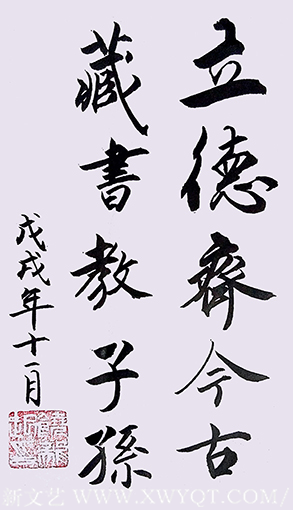 立德齊今古
藏書教子孫
戊戌年十一月
新文艺 WWW.XWYQT.COM